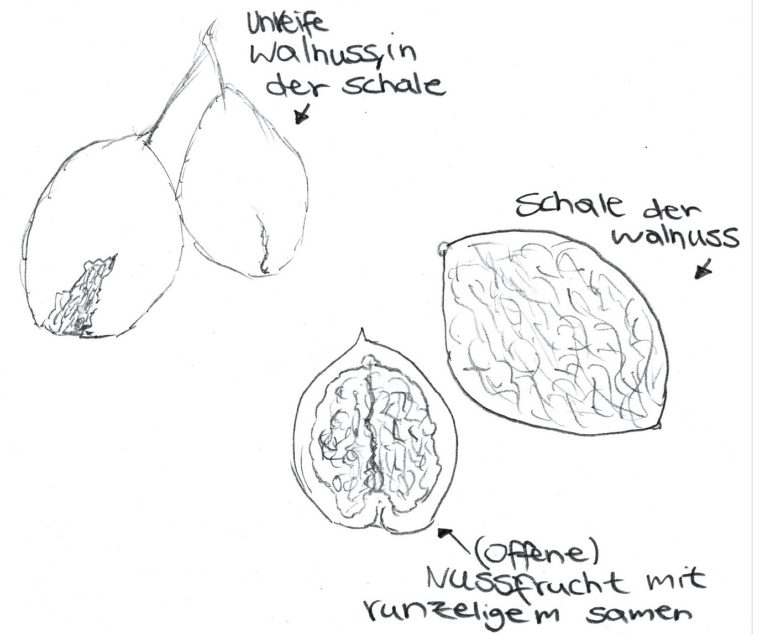 Unreife
Walnuss, in
der Schale
Schale der
walnuss
(Offene)
Nussfrucht mit
runzeligem samen